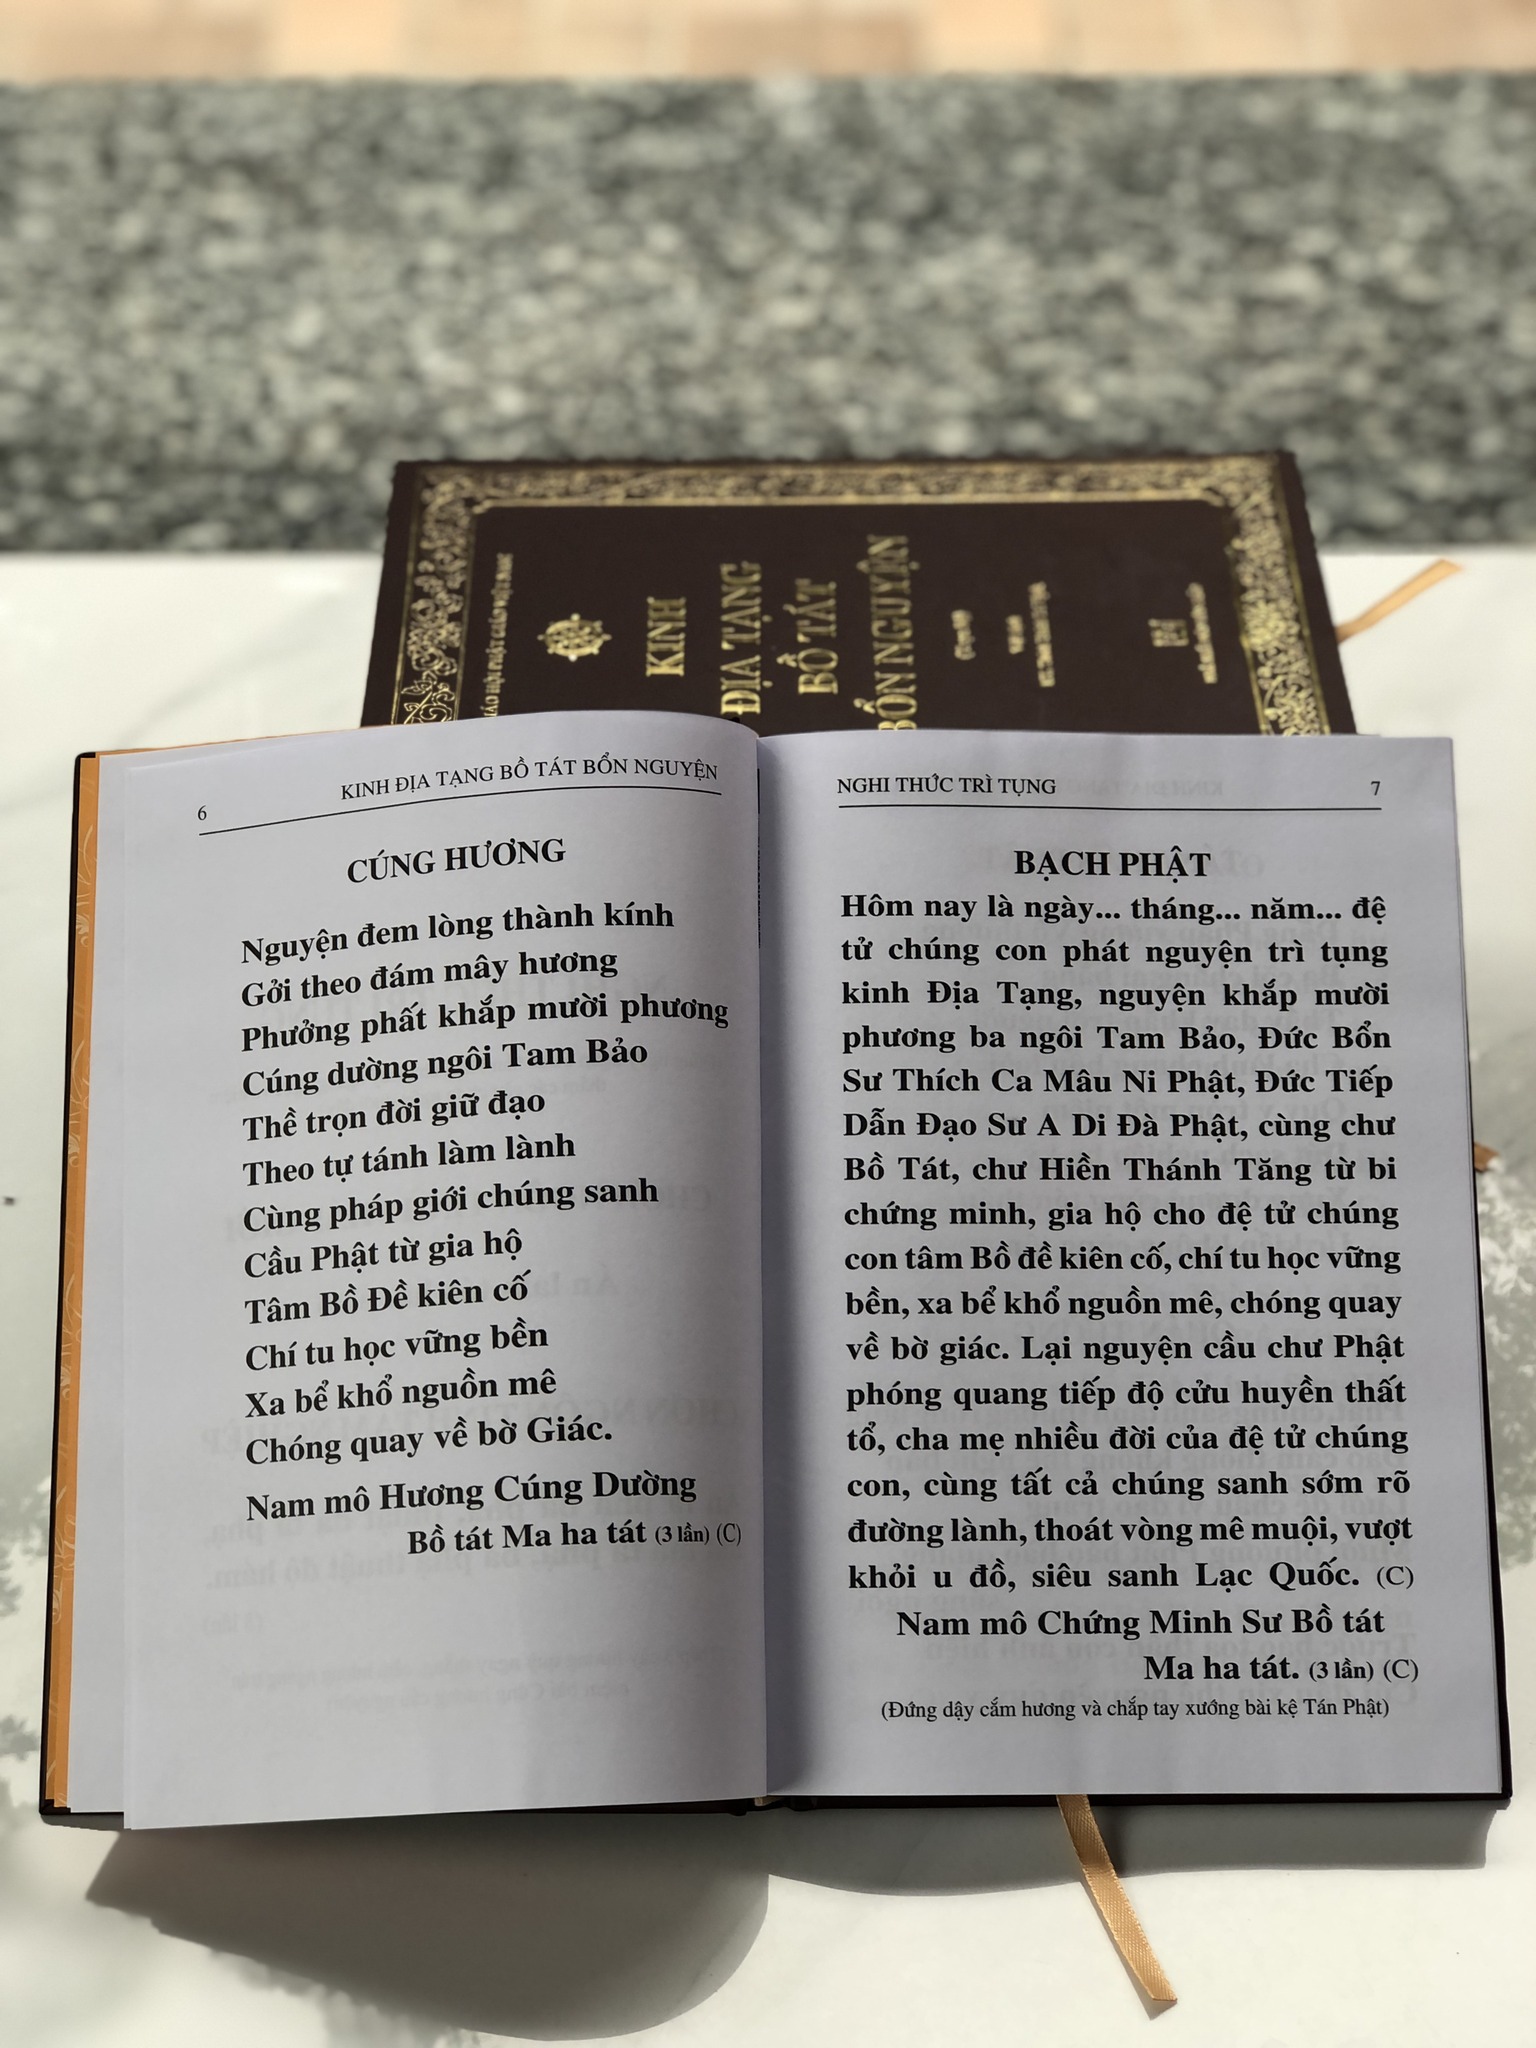 KINH
ĐỊA TẠNG
BỒ TÁT
BỔN NGUYỆN
6
KINH ĐỊA TẠNG BỒ TÁT BỔN NGUYỆN
CÚNG HƯƠNG
Nguyện đem lòng thành kính
Gởi theo đám mây hương
Phưởng phất khắp mười phương
Cúng dường ngôi Tam Bảo
Thề trọn đời giữ đạo
Theo tự tánh làm lành
Cùng pháp giới chúng sanh
Cầu Phật từ gia hộ
Tâm Bồ Đề kiên cố
Chí tu học vững bền
Xa bể khổ nguồn mê
Chóng quay về bờ Giác.
Nam mô Hương Cúng Dường
Bồ tát Ma ha tát (3 lần) (C)
NGHI THỨC TRÌ TỤNG 7
BẠCH PHẬT
Hôm nay là ngày... tháng... năm... đệ
tử chúng con phát nguyện trì tụng
kinh Địa Tạng, nguyện khắp mười
phương ba ngôi Tam Bảo, Đức Bổn
Sư Thích Ca Mâu Ni Phật, Đức Tiếp
Dẫn Đạo Sư A Di Đà Phật, cùng chư
Bồ Tát, chư Hiền Thánh Tăng từ bi
chứng minh, gia hộ cho đệ tử chúng
con tâm Bồ đề kiên cố, chí tu học vững
bền, xa bể khổ nguồn mê, chóng quay
về bờ giác. Lại nguyện cầu chư Phật
phóng quang tiếp độ cửu huyền thất
tổ, cha mẹ nhiều đời của đệ tử chúng
con, cùng tất cả chúng sanh sớm rõ
đường lành, thoát vòng mê muội, vượt
khỏi u đồ, siêu sanh Lạc Quốc. (C)
Nam mô Chứng Minh Sư Bồ tát
Ma ha tát. (3 lần) (C)
(Đứng dậy cắm hương và chắp tay xướng bài kệ Tán Phật)